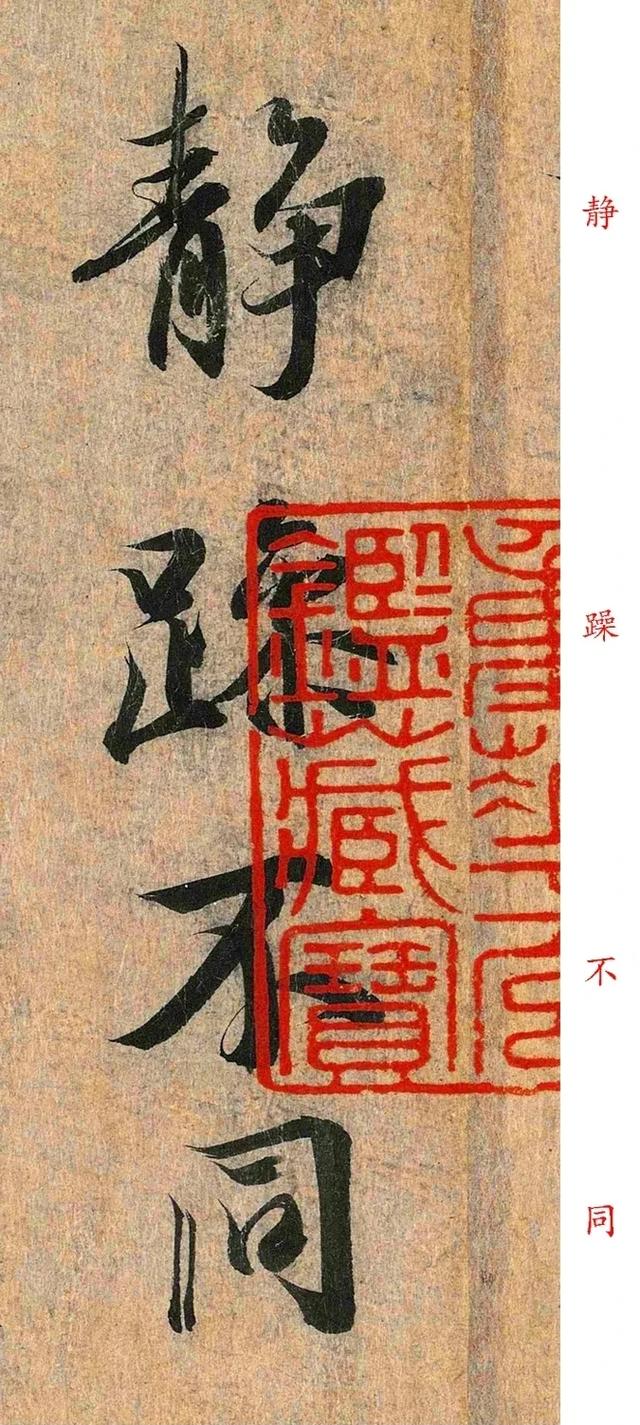 静躁不同
鑑藏寶
静
躁
不
同